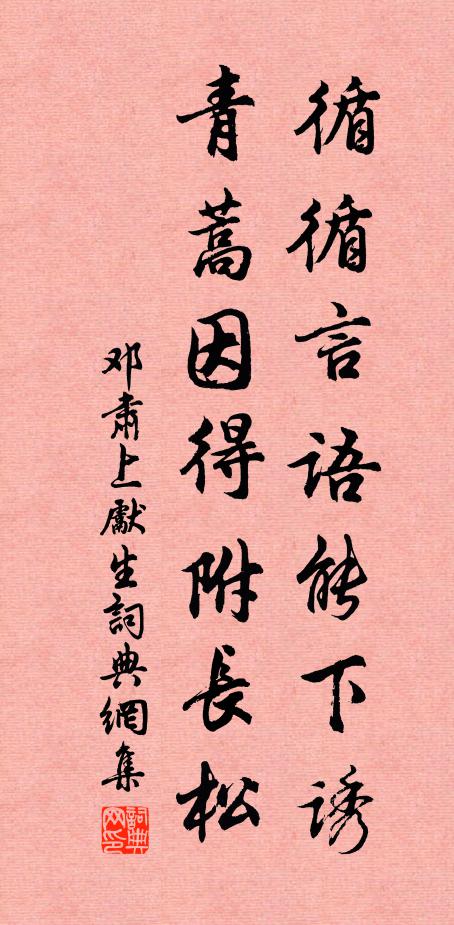 循循言語能下誘
青蒿因得附長松
邓肅上獻生詞典網集
詞典网印